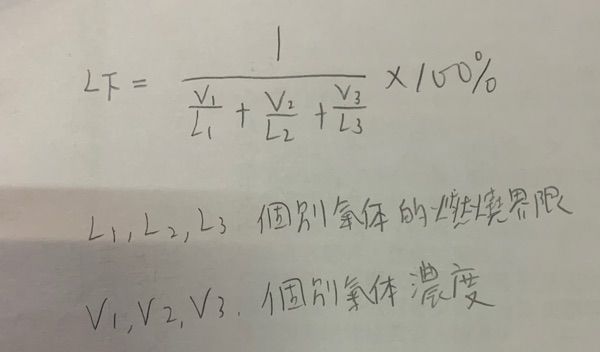 L下 = 1 / (V1/L1 + V2/L2 + V3/L3) × 100%
L1, L2, L3 個別氣体的燃燒界限
V1, V2, V3. 個別氣体濃度